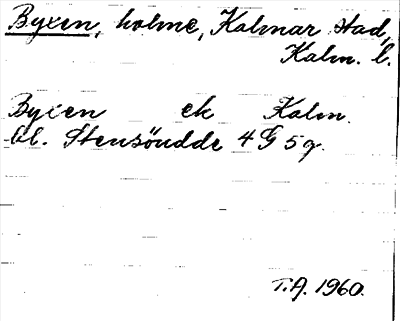 Byxen, holme, Kalmar stad,
Kalm. l.
Byxen ek Kalm.
bl. Stensöudde 4 G 5 g.
T.A. 1960.